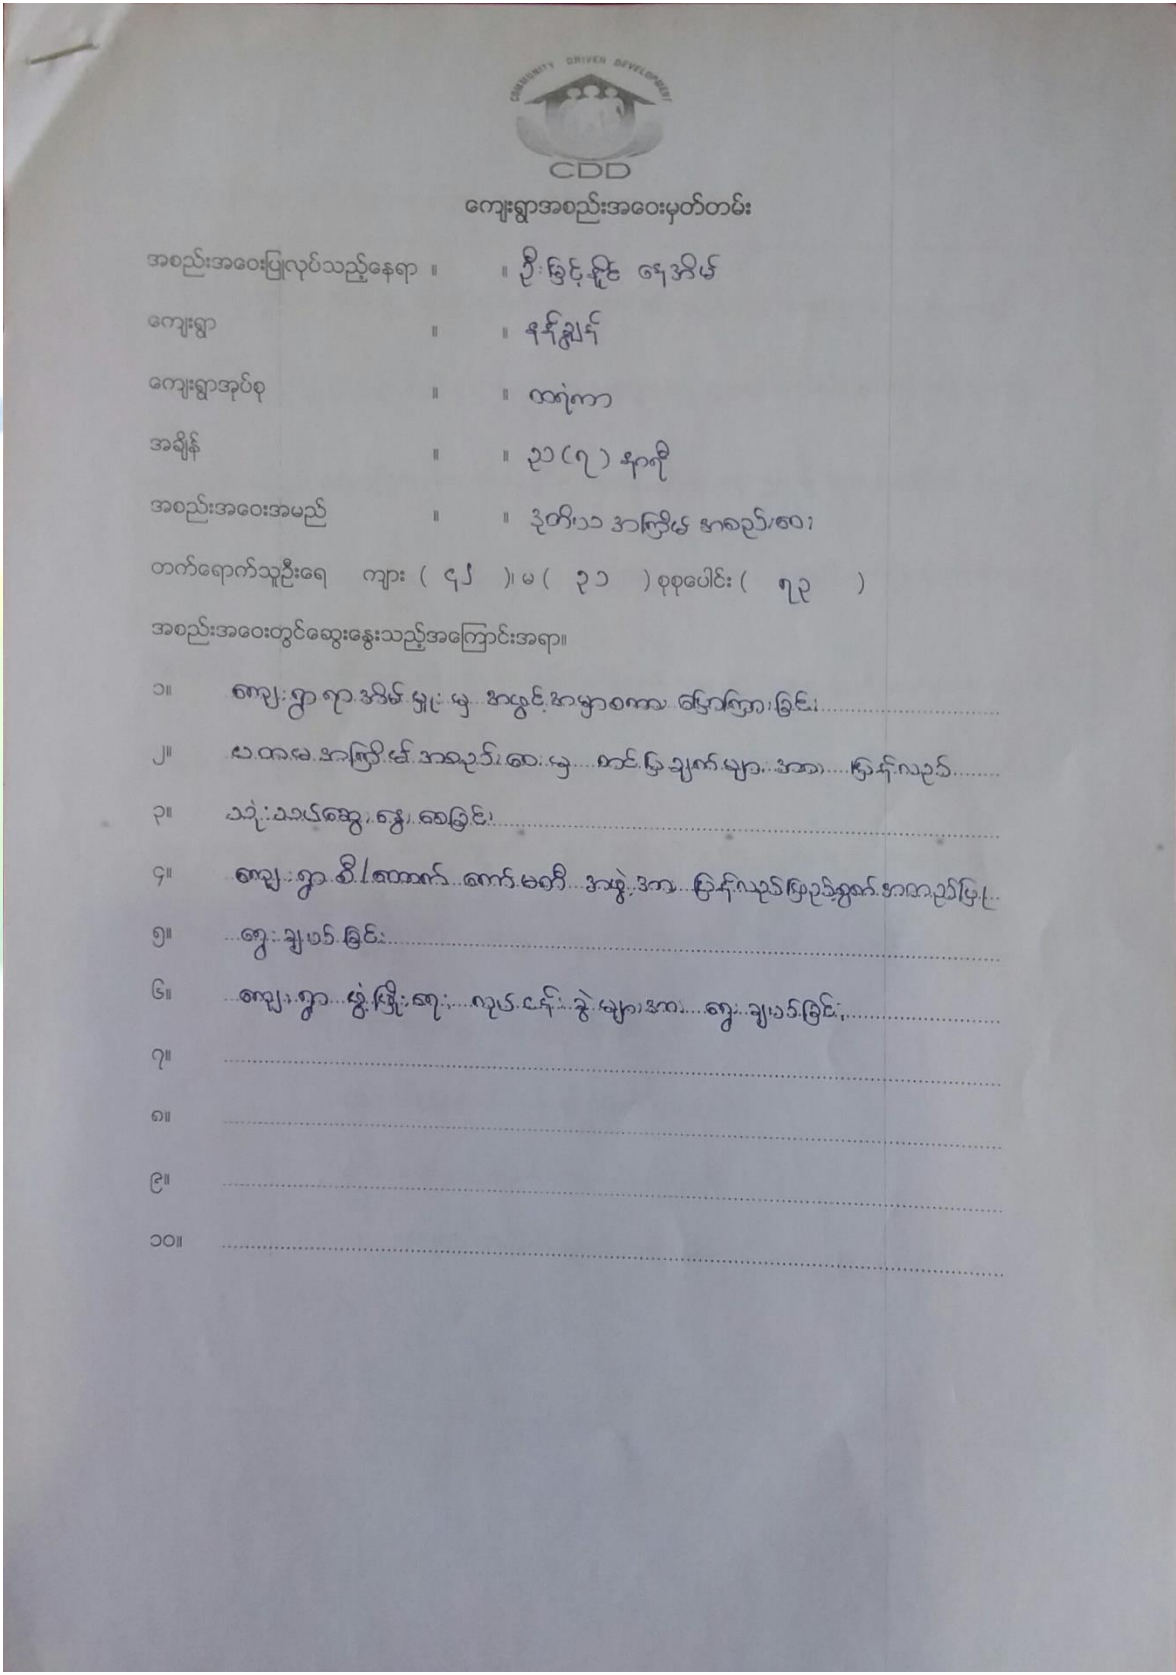 COMMUNITY DRIVEN DEVELOPMENT
CDD
ကျေးရွာအစည်းအဝေးမှတ်တမ်း
အစည်းအဝေးပြုလုပ်သည့်နေရာ ။ ။ ဦးမြင့်နိုင် နေအိမ်
ကျေးရွာ ။ ။ နန်းချွန်
ကျေးရွာအုပ်စု ။ ။ ထရံကာ
အချိန် ။ ။ ည (၇) နာရီ
အစည်းအဝေးအမည် ။ ။ ဒုတိယ အကြိမ် အစည်းအဝေး
တက်ရောက်သူဦးရေ ကျား ( ၄၂ )၊ မ ( ၃၁ ) စုစုပေါင်း ( ၇၃ )
အစည်းအဝေးတွင်ဆွေးနွေးသည့်အကြောင်းအရာ။
၁။ ကျေးရွာ ရာအိမ်မှူး မှ အဖွင့်အမှာစကား ပြောကြားခြင်း
၂။ ပထမအကြိမ် အစည်းအဝေးမှ တင်ပြချက်များအား ပြန်လည်
၃။ သုံးသပ်ဆွေးနွေးစေခြင်း
၄။ ကျေးရွာ စီ/ထောက် ကော်မတီ အဖွဲ့အား ပြန်လည်ဖြည့်စွက်အတည်ပြု
၅။ ရွေးချယ်ခြင်း
၆။ ကျေးရွာ ဖွံ့ဖြိုးရေး လုပ်ငန်းခွဲများအား ရွေးချယ်ခြင်း
၇။
၈။
၉။
၁၀။